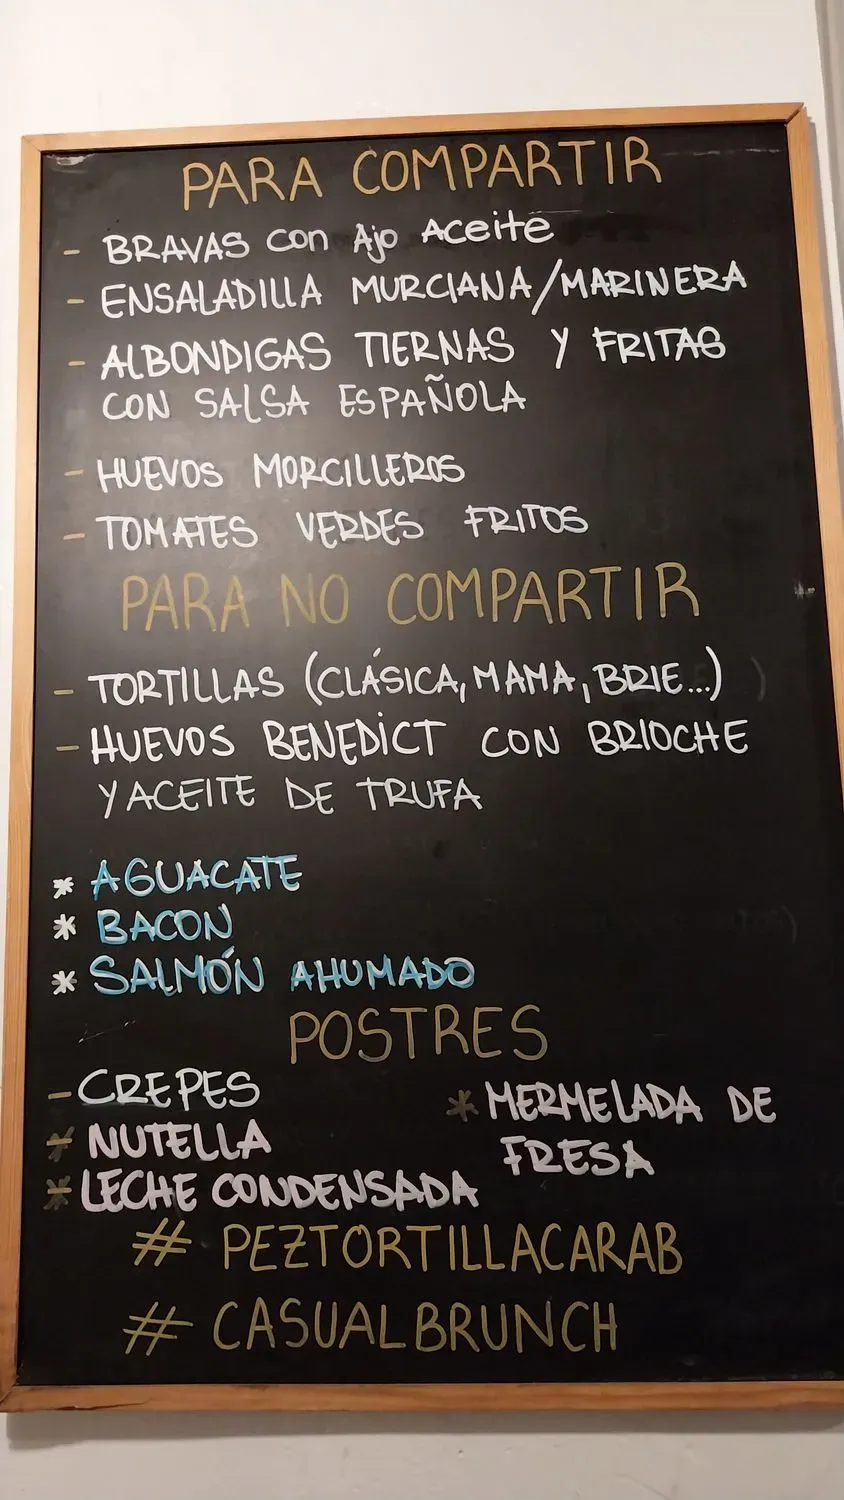 PARA COMPARTIR
- BRAVAS con Ajo Aceite
- ENSALADILLA MURCIANA/MARINERA
- ALBONDIGAS TIERNAS Y FRITAS
CON SALSA ESPAÑOLA
- HUEVOS MORCILLEROS
- TOMATES VERDES FRITOS
PARA NO COMPARTIR
- TORTILLAS (CLÁSICA, MAMA, BRIE...)
- HUEVOS BENEDICT CON BRIOCHE
Y ACEITE DE TRUFA
* AGUACATE
* BACON
* SALMÓN AHUMADO
POSTRES
- CREPES
* NUTELLA
* LECHE CONDENSADA
* MERMELADA DE
FRESA
# PEZTORTILLACARAB
# CASUALBRUNCH